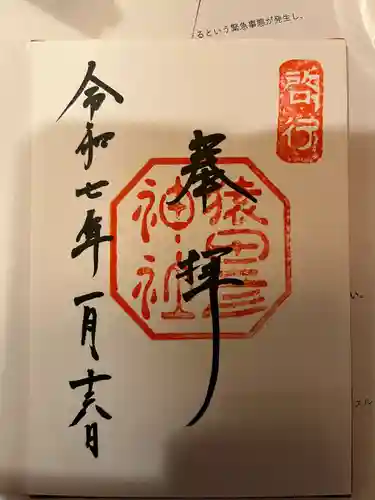 るという緊急事態が発生し、
啓行
奉拝
猿田彦
神社
令和七年一月十六日
い。